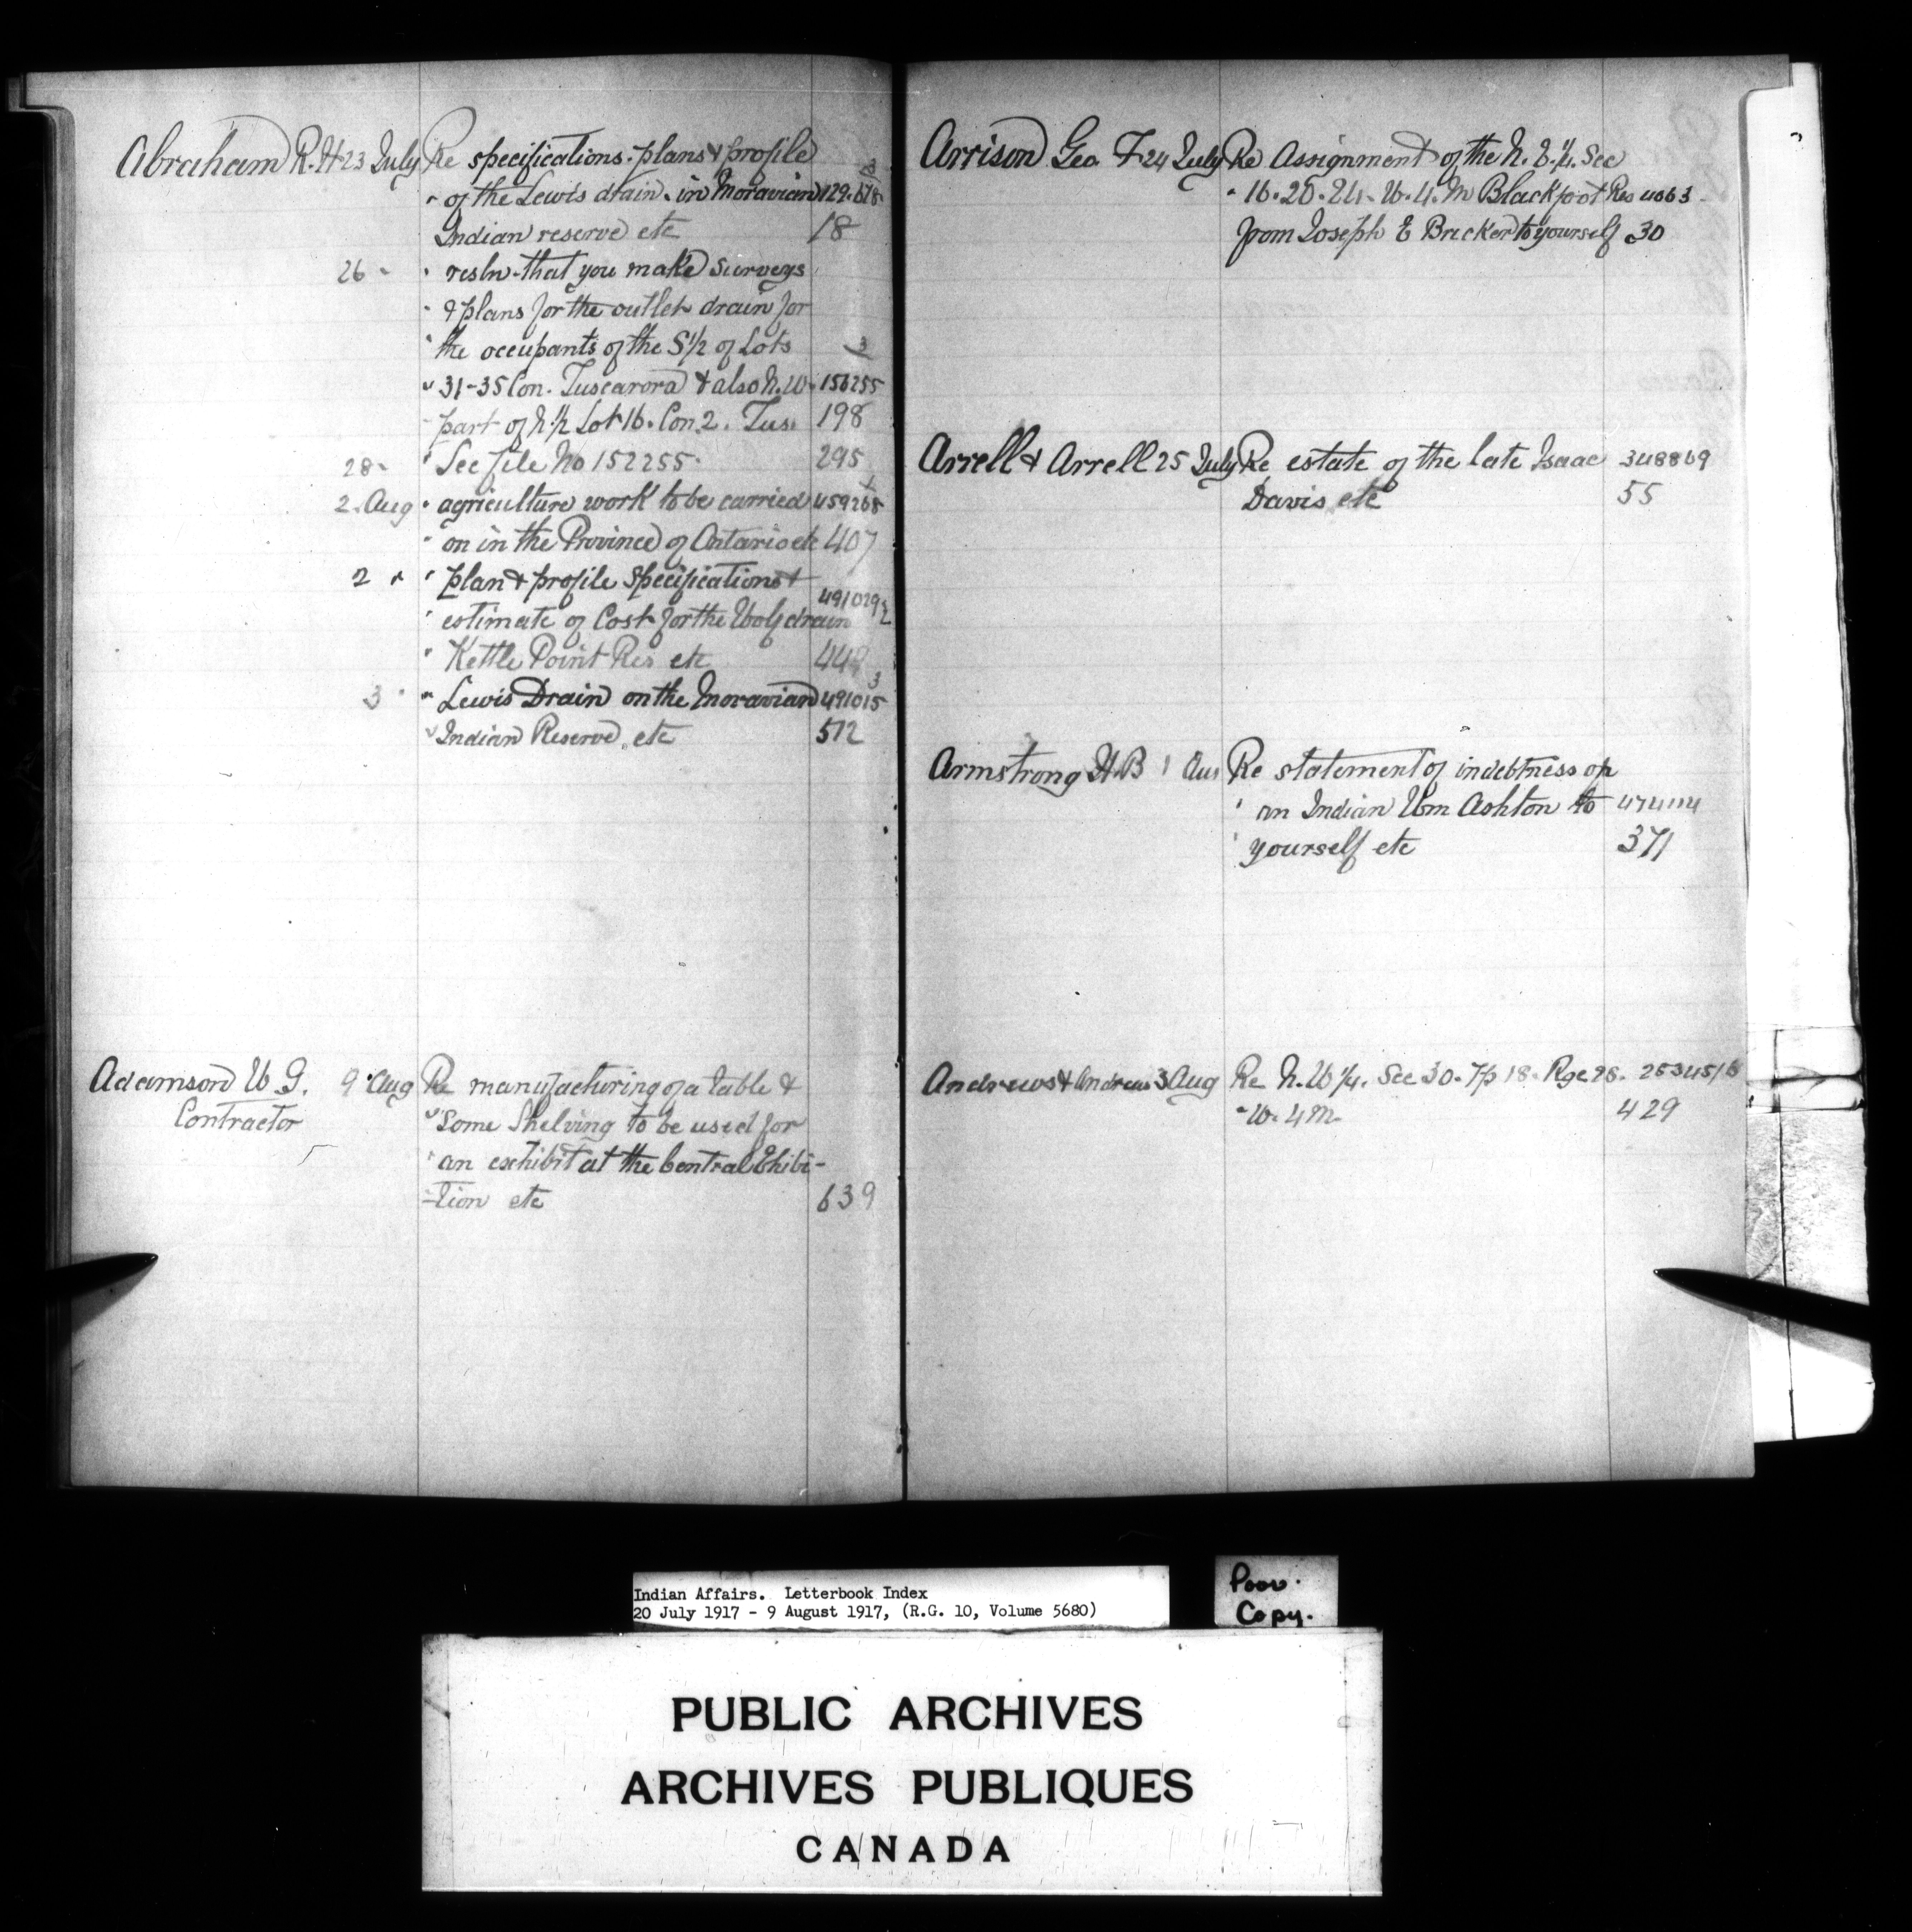 Abraham R. H 23 July Re specifications. plans & profile 3
" of the Lewis drain. in Moravian 129.678
Indian reserve etc 18
26 " " resln. that you make surveys
" & plans for the outlet drain for
" the occupants of the S1/2 of Lots 3
" 31-35 Con. Tuscarora & also N.W. 156255
part of N.1/2 Lot 16. Con 2. Tus. 198
28 " " See file No 152255. 295
2. Aug " agriculture work to be carried 459268
" on in the Province of Ontario etc 407
2 " " plan & profile specifications &
" estimate of Cost for the Wolf drain 491029 2
" Kettle Point Res etc
3 " " Lewis Drain on the Moravian 491015 3
" Indian Reserve, etc 512
Adamson W G. 9 Aug Re manufacturing of a table &
Contractor " some Shelving to be used for
" an exhibit at the Central Exhibi-
-tion etc 639
Arrison Geo. F. 24 July Re Assignment of the N. E. 1/4. Sec
" 16. 20. 24. W. 4. M Blackfoot Res 4063
from Joseph E Bricker to yourself 30
Arrell & Arrell 25 July Re estate of the late Isaac 348869
Davis etc 55
Armstrong H. B 1 Aug Re statement of indebtness of
" an Indian Wm Ashton to 474114
" yourself etc 371
Andrews & Andrews 3 Aug Re N. W 1/4. Sec 30. Tp 18. Rge 28. 253451 6
" W. 4 M. 429
Indian Affairs. Letterbook Index
20 July 1917 - 9 August 1917, (R.G. 10, Volume 5680)
Poor.
Copy.
PUBLIC ARCHIVES
ARCHIVES PUBLIQUES
CANADA